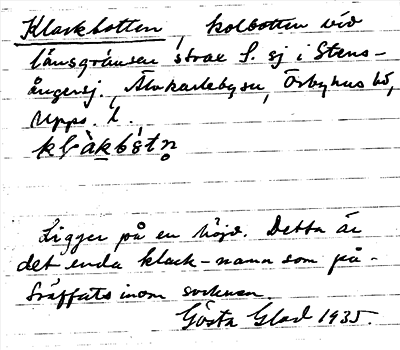 Klackbotten, kolbotten vid
länsgränsen strax S. ej i Stens-
ångersj., Älvkarlebysn, Örbyhus hd,
Upps. l.
Ligger på en höjd. Detta är
det enda klack-namn som på-
träffats inom socknen.
Gösta Glad 1935.